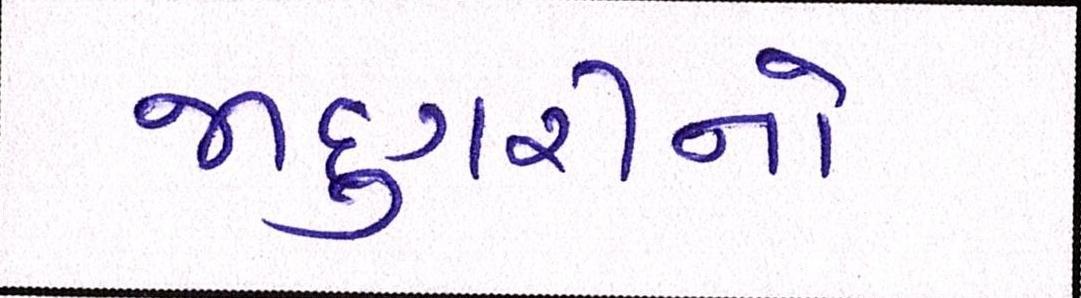 જાદુગરીનો